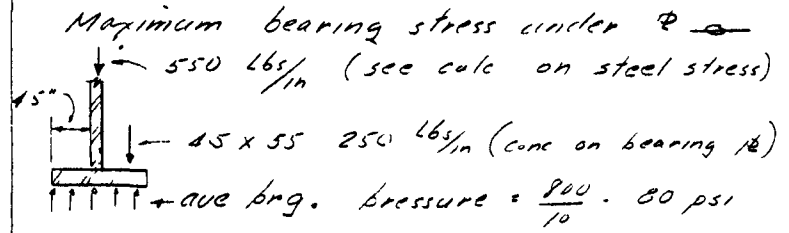 Maximum bearing stress under ⅊
550 Lbs/in (see calc on steel stress)
4.5"
45 x 55 250 Lbs/in (conc on bearing ⅊)
ave brg. pressure = 800/10 = 80 psi